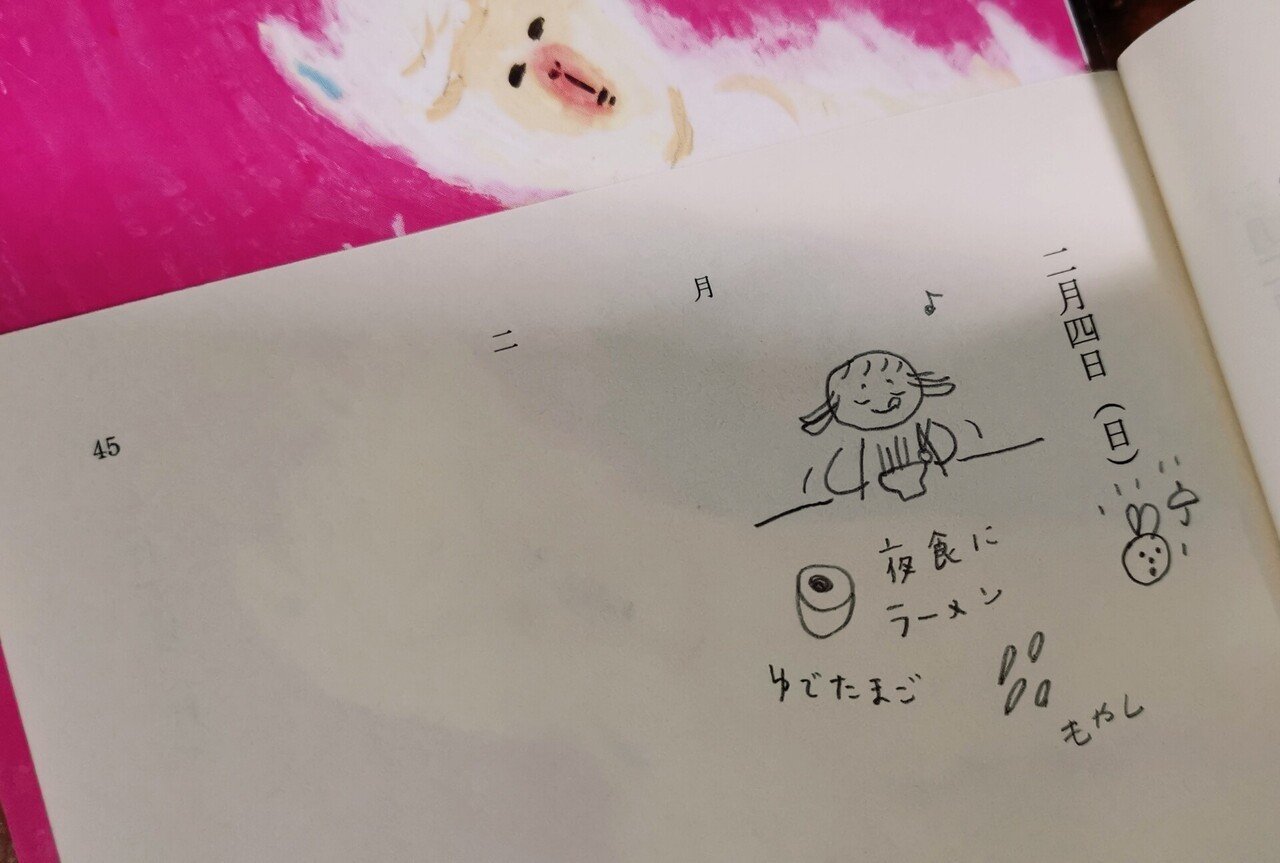 二月四日(日)
夜食に
ラーメン
ゆでたまご
もやし
二月
45